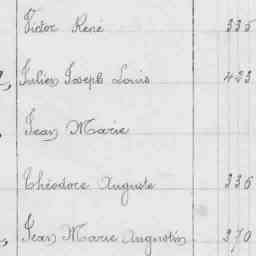 Victor René 335
Julien Joseph Louis 423
Jean Marie
Théodore Auguste 336
Jean Marie Augustin 370